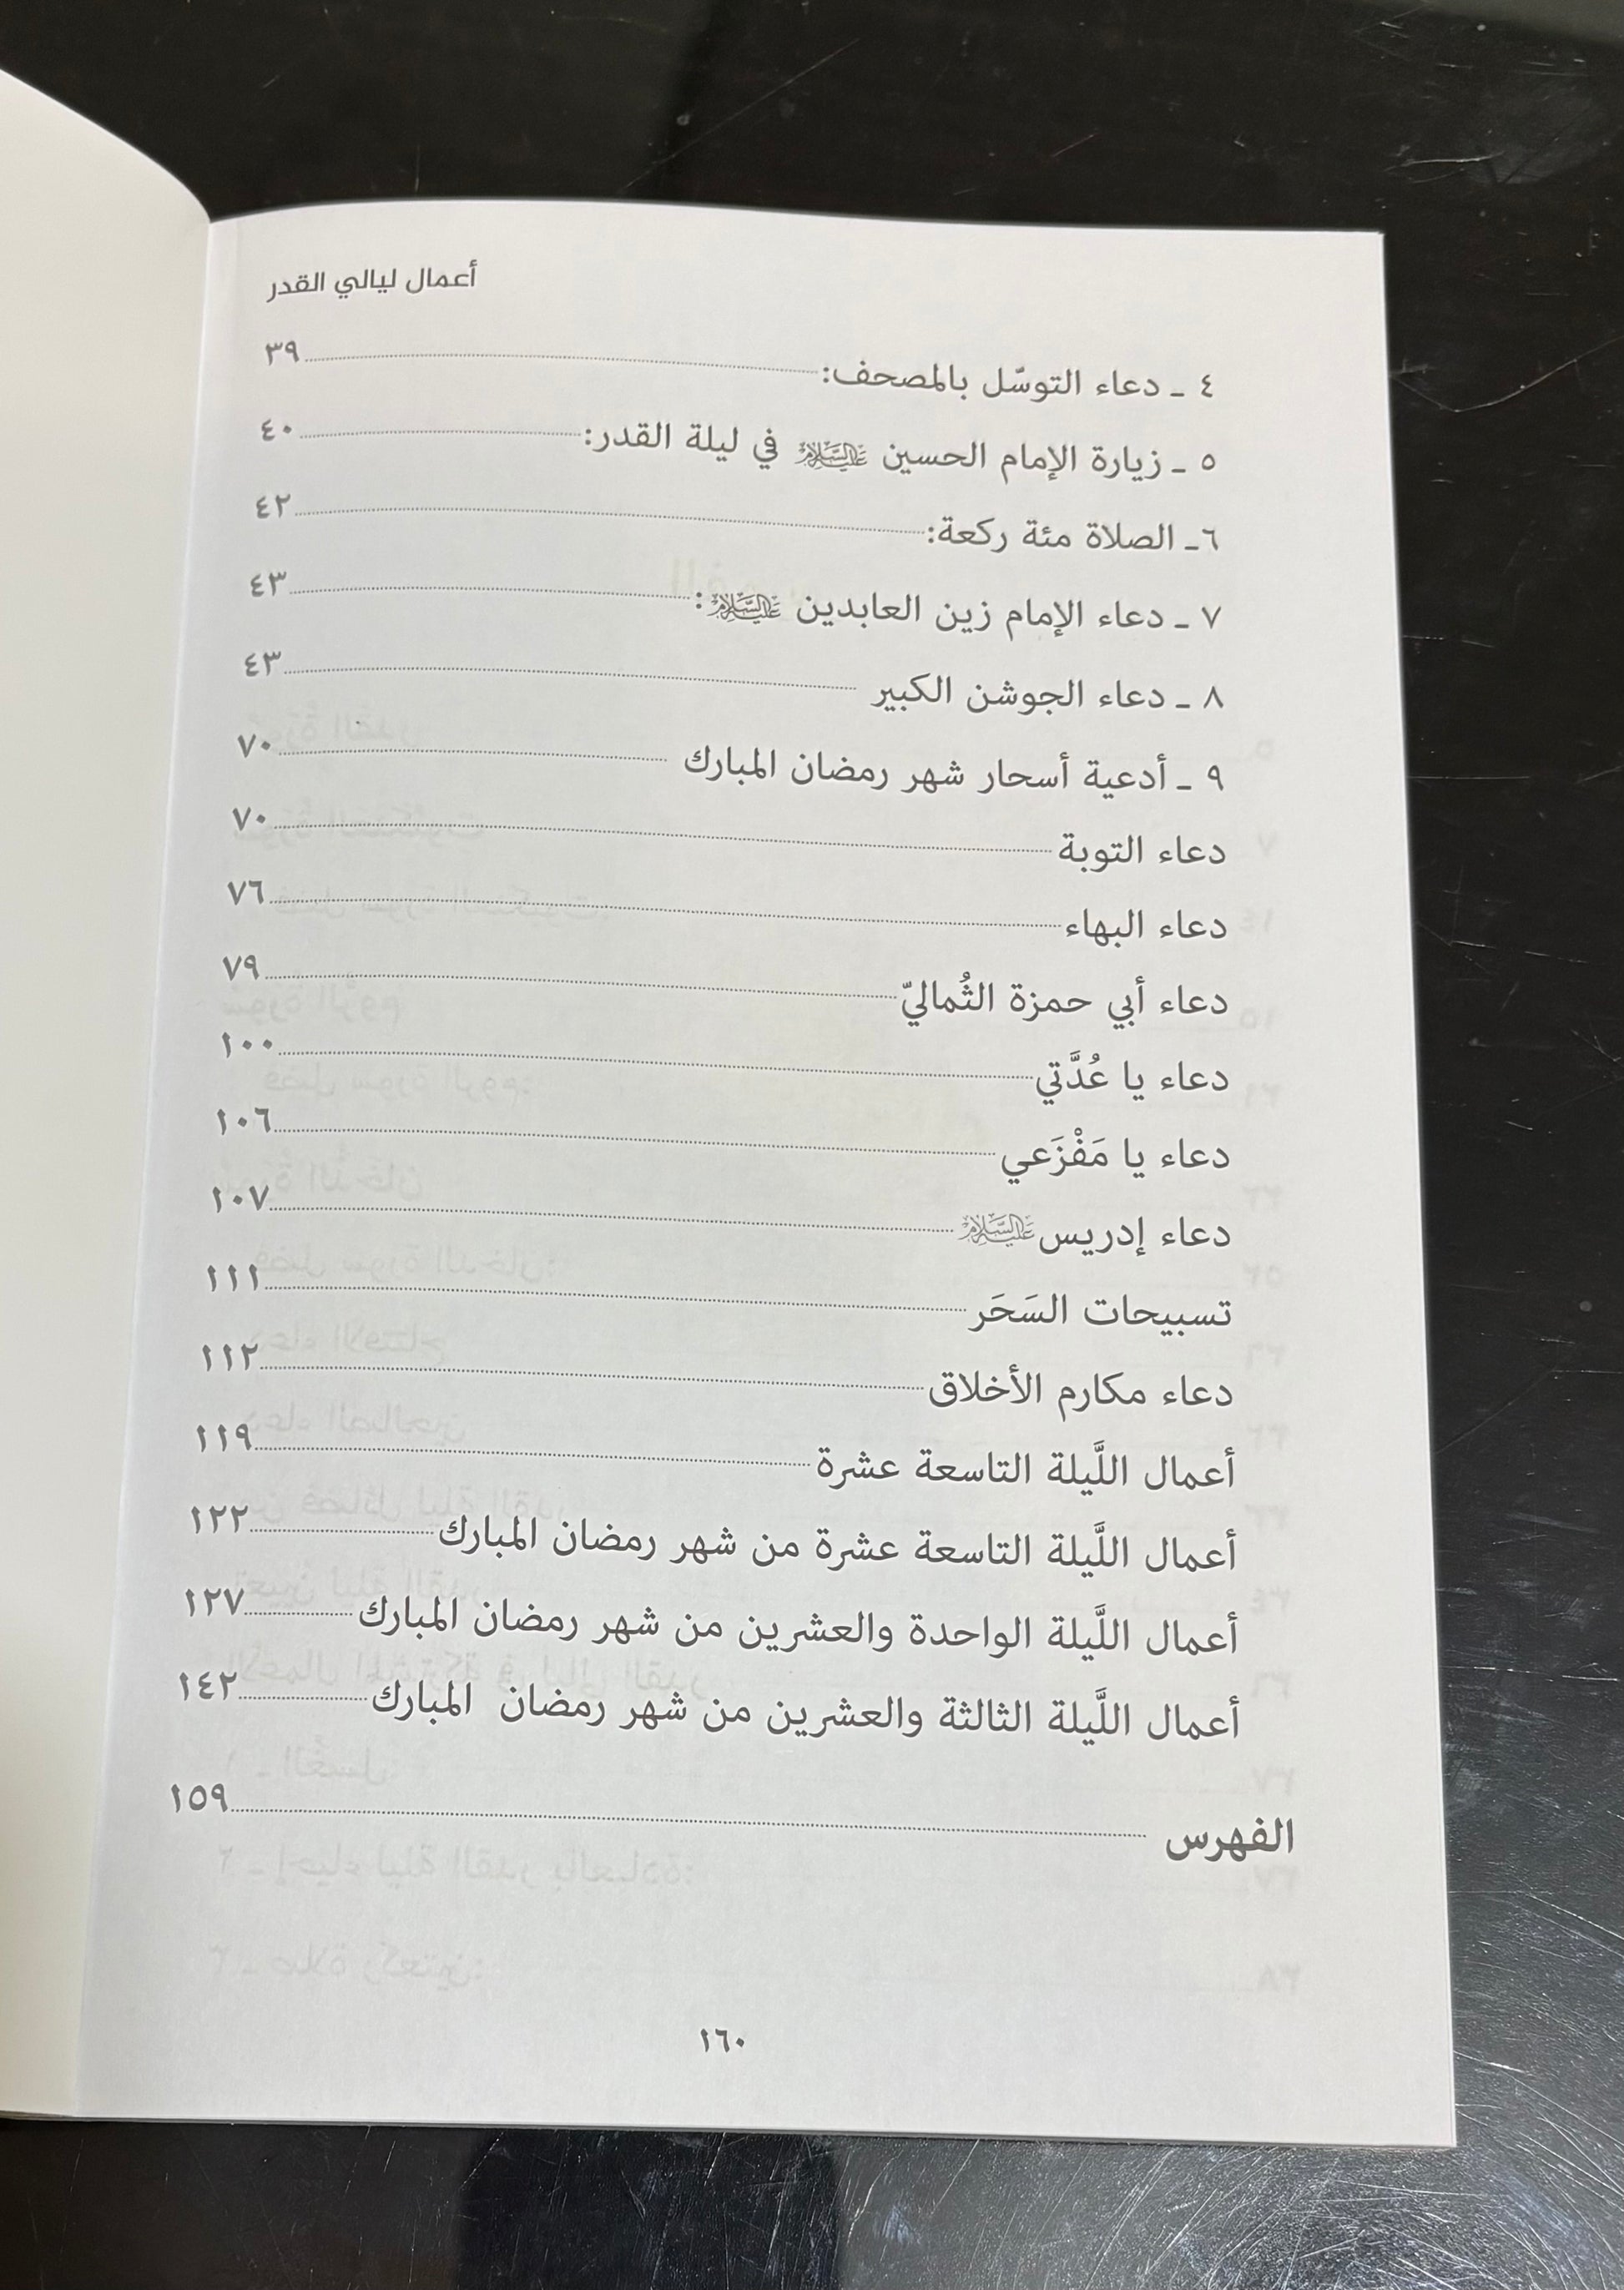 أعمال ليالي القدر
٤ ـ دعاء التوسّل بالمصحف: ٣٩
٥ ـ زيارة الإمام الحسين عليه السلام في ليلة القدر: ٤٠
٦ـ الصلاة مئة ركعة: ٤٢
٧ ـ دعاء الإمام زين العابدين عليه السلام: ٤٣
٨ ـ دعاء الجوشن الكبير ٤٣
٩ ـ أدعية أسحار شهر رمضان المبارك ٧٠
دعاء التوبة ٧٠
دعاء البهاء ٧٦
دعاء أبي حمزة الثُماليّ ٧٩
دعاء يا عُدَّتي ١٠٠
دعاء يا مَفْزَعي ١٠٦
دعاء إدريس عليه السلام ١٠٧
تسبيحات السَحَر ١١١
دعاء مكارم الأخلاق ١١٢
أعمال اللَّيلة التاسعة عشرة ١١٩
أعمال اللَّيلة التاسعة عشرة من شهر رمضان المبارك ١٢٢
أعمال اللَّيلة الواحدة والعشرين من شهر رمضان المبارك ١٢٧
أعمال اللَّيلة الثالثة والعشرين من شهر رمضان المبارك ١٤٢
الفهرس ١٥٩
١٦٠